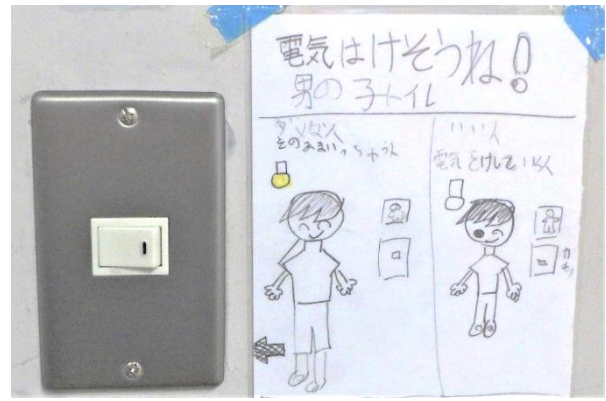 電気はけそうね!
男の子トイレ
ダメな人
そのままいっちゃう人
いい人
電気をけしていく人
カチッ